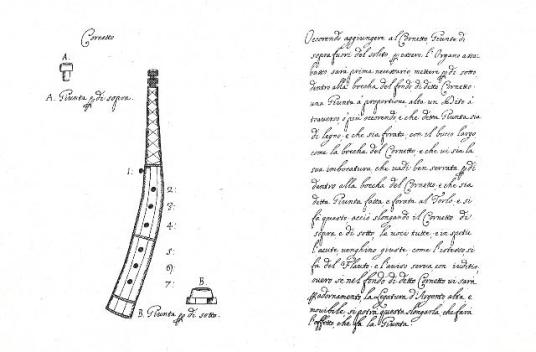 Cornetto
A.
A. Giunta p di sopra
1:
2:
3:
4:
5:
6)
7:
B.
B. Giunta p di sotto.
Occorendo aggiungere al Cornetto Giunte di
sopra fuori del solito p essere l'Organo assai
basso sarà prima necessario mettere p di sotto
dentro alla brocha del fondo di detto Cornetto
una Giunta à proportione alta un dito à
traverso, ò più occorendo e che detta Giunta sia
di legno, e che sia forata, con il buco largo
come la brocha del Cornetto, e che vi sia la
sua imbocatura che vadi ben serrata p di
dentro alla brocha del Cornetto, e che sia
detta Giunta fatta, e forata al Torlo, e si
fà questo, acciò slongandi il Cornetto di
sopra e di sotto la voci tutte, e in spetie
l'acute, venghino giuste, come l'istesso si
fà del Flauto, e l'aviso serva con juditio,
overo se nel fondo di detto Cornetto vi sarà
p adornamento, la Legatura d'Argento alta, e
movibile, si potrà questa slongarla, che farà
l'effetto, che fà la Giunta.